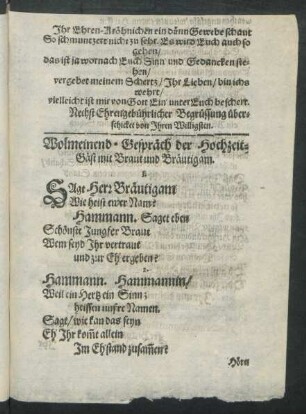 Ihr Ehren-Kräntzlichen ein dänn Gewebe schaut
So schmuntzert nicht zu sehr. Es wird Euch auch so
gehen/
das ist ja wornach Euch Sinn und Gedancken ste-
hen/
vergebet meinem Schertz/ Ihr Lieben/ bin ichs
wehrt/
vielleicht ist mir von Gott Ein' unter Euch beschert.
Nechst Ehrentgebührlicher Begrüssung über-
schicket von Ihrem Willigsten.
Wolmeinend-Gespräch der Hochzeit-
Gäst mit Braut und Bräutigam.
1.
SAge Herr Bräutigam
Wie heist ewer Nam?
Hammann. Saget eben
Schönste Jungfer Braut
Wem seyd Ihr vertraut
und zur Eh ergeben?
2.
Hammann. Hammannin/
Weil ein Hertz ein Sinn;
heissen unsre Namen.
Sagt/ wie kan das seyn
Eh Ihr komt allein
Im Ehstand zusammen?
Hörn